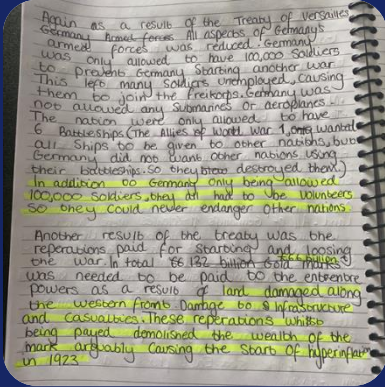 Again as a result of the Treaty of Versailles
Germany Armed forces All aspects of Germany's
armed forces was reduced. Germany
was only allowed to have 100,000 soldiers
to prevent Germany starting another war
This left many soldiers unemployed, causing
them to join the Freikorps. Germany was
not allowed any submarines or aeroplanes.
The nation were only allowed to have
6 Battleships (The Allies of World War 1, wanted
all ships to be given to other nations, but
Germany did not want other nations using
their battleships. so they destroyed them.)
In addition to Germany only being allowed
100,000 soldiers, they all had to be volunteers
so they could never endanger other nations.
Another result of the treaty was the
reperations paid for starting and loosing
the war. In total £6,132 billion Gold
was needed to be paid to the ententre
powers as a result of land damaged along
the western front. Damage to Infrastructure
and casualties. These reperations whilst
being payed demolished the wealth of the
mark arguably causing the start of hyperinflation
in 1923